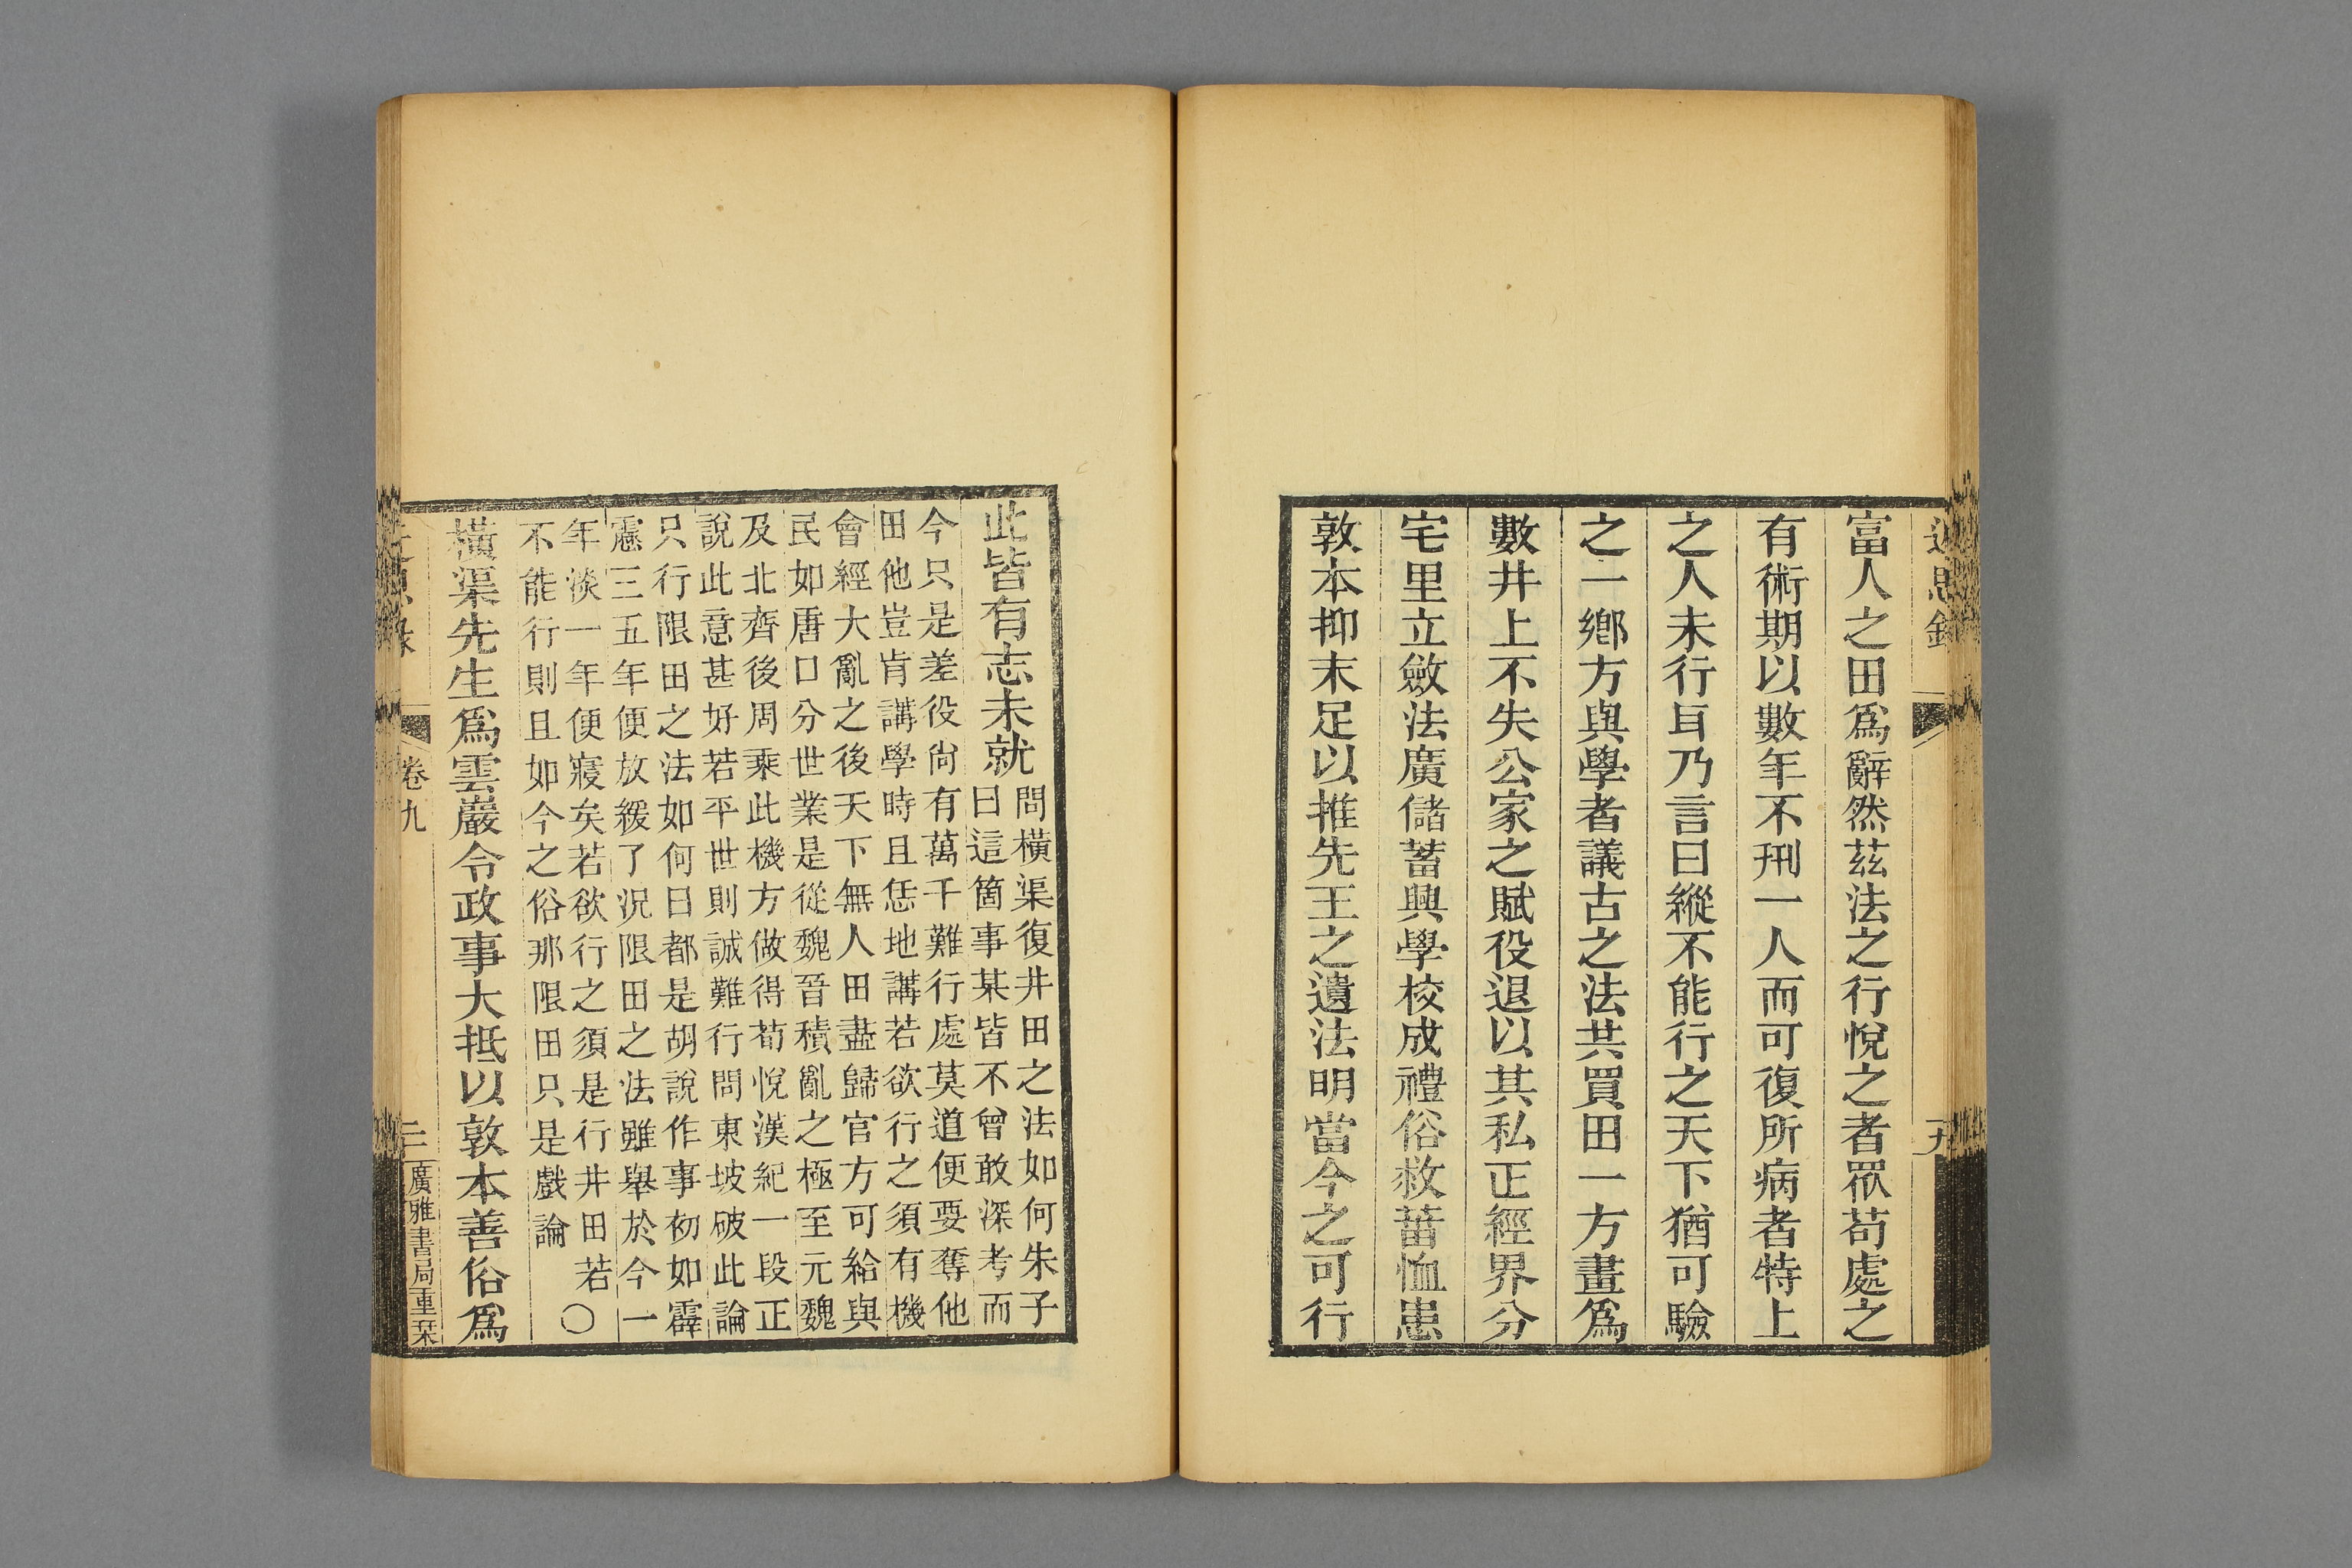 富人之田爲辭然茲法之行悅之者眾苟處之
有術期以數年不刑一人而可復所病者特上
之人未行耳乃言曰縱不能行之天下猶可驗
之一鄉方與學者議古之法共買田一方畫爲
數井上不失公家之賦役退以其私正經界分
宅里立斂法廣儲蓄興學校成禮俗救菑恤患
敦本抑末足以推先王之遺法明當今之可行
此皆有志未就
問橫渠復井田之法如何朱子
曰這箇事某皆不曾敢深考而
今只是差役尙有萬千難行處莫道便要奪他
田他豈肯講學時且恁地講若欲行之須有機
會經大亂之後天下無人田盡歸官方可給與
民如唐口分世業是從魏晉積亂之極至元魏
及北齊後周乘此機方做得荀悅漢紀一段正
說此意甚好若平世則誠難行問東坡破此論
只行限田之法如何曰都是胡說作事初如霹
靂三五年便放緩了況限田之法雖舉於今一
年淡一年便寢矣若欲行之須是行井田若〇
不能行則且如今之俗那限田只是戲論
橫渠先生爲雲巖令政事大抵以敦本善俗爲
卷九
廣雅書局重栞